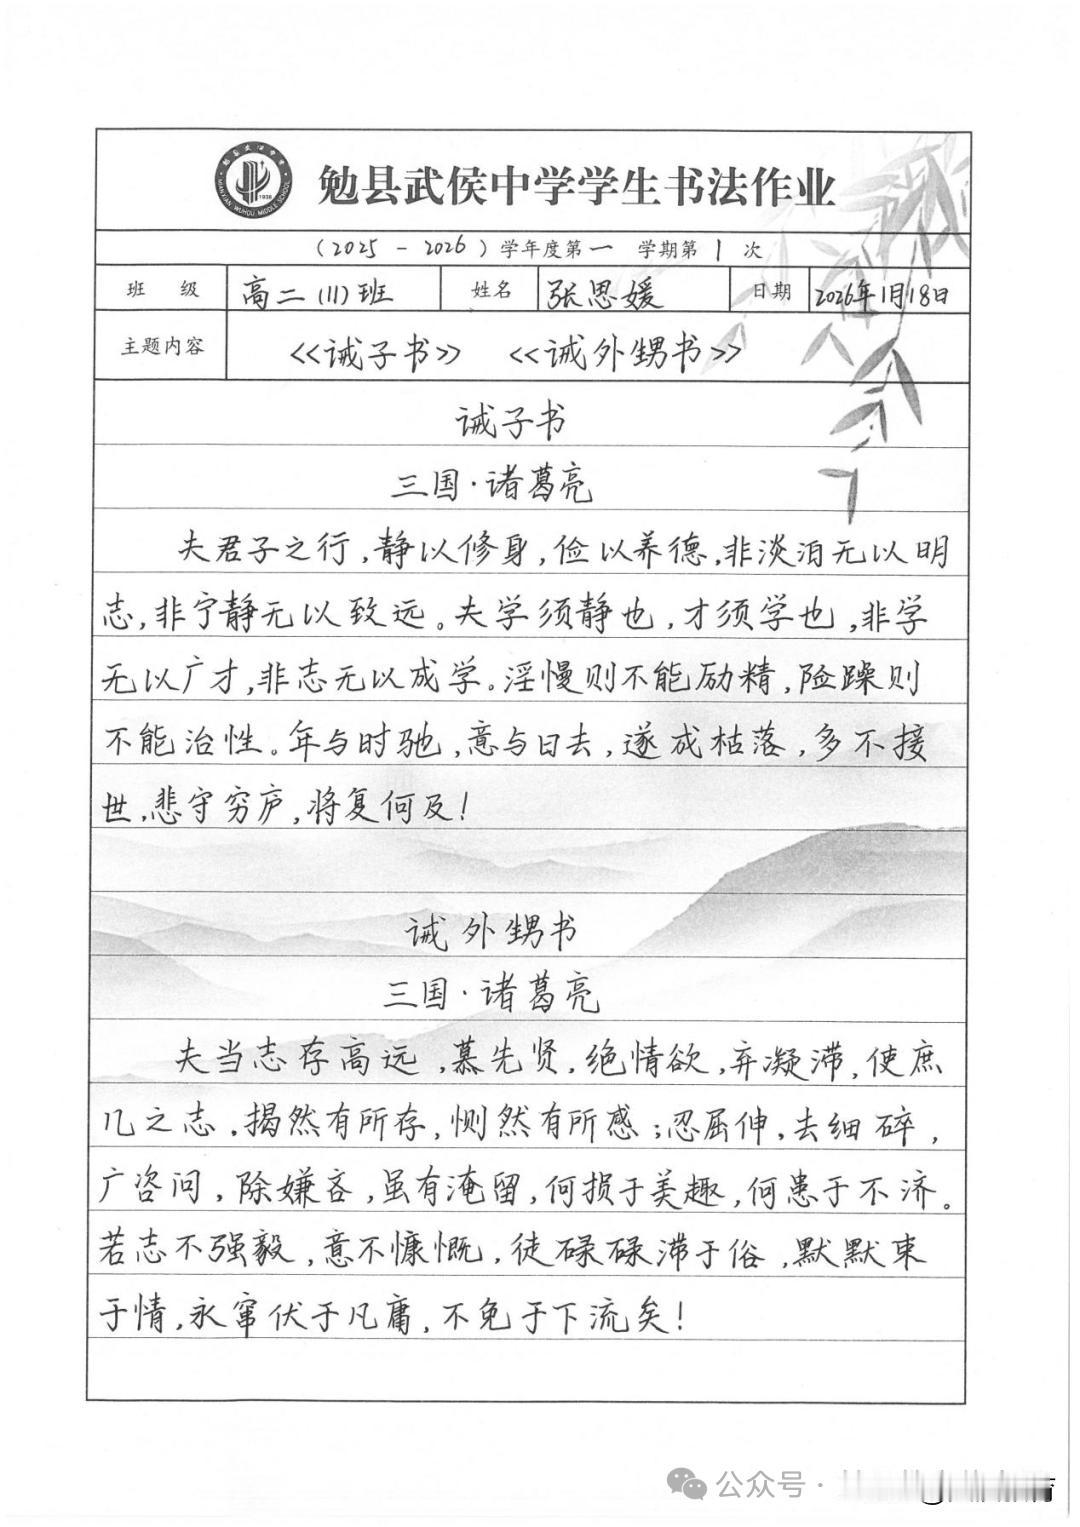 勉县武侯中学
MIANXIAN WUHOU MIDDLE SCHOOL
1938
勉县武侯中学学生书法作业
（2025 － 2026）学年度第一 学期第 1 次
班 级 高二（11）班 姓名 张思媛 日期 2026年1月18日
主题内容 《诫子书》 《诫外甥书》
诫子书
三国·诸葛亮
夫君子之行，静以修身，俭以养德，非淡泊无以明
志，非宁静无以致远。夫学须静也，才须学也，非学
无以广才，非志无以成学。淫慢则不能励精，险躁则
不能治性。年与时驰，意与日去，遂成枯落，多不接
世，悲守穷庐，将复何及！
诫外甥书
三国·诸葛亮
夫当志存高远，慕先贤，绝情欲，弃凝滞，使庶
几之志，揭然有所存，恻然有所感；忍屈伸，去细碎，
广咨问，除嫌吝，虽有淹留，何损于美趣，何患于不济。
若志不强毅，意不慷慨，徒碌碌滞于俗，默默束
于情，永窜伏于凡庸，不免于下流矣！
公众号·